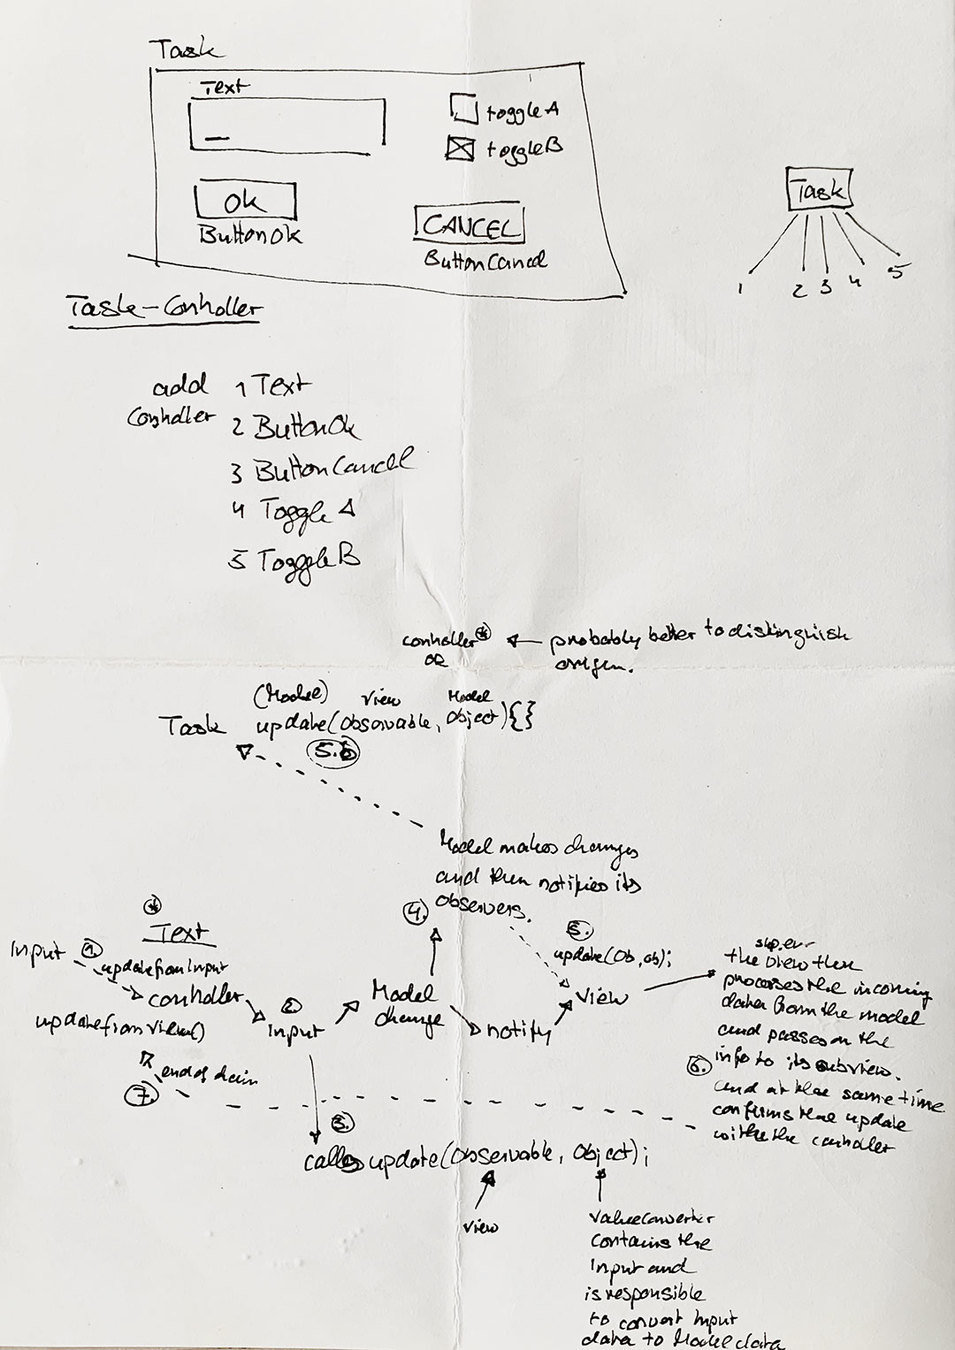 Task
Text
toggle A
toggle B
Ok
ButtonOk
CANCEL
ButtonCancel
Task
1 2 3 4 5
Task-Controller
add
Controller
1 Text
2 ButtonOk
3 ButtonCancel
4 Toggle A
5 ToggleB
controller * probably better to distinguish
OR origin.
(Model) View Model
Task update(Observable, Object){}
5.b
Model makes changes
and then notifies its
observers.
4.
*
Text
Input 1.
updatefromInput
controller
updatefromView()
2.
Input
Model
change
notify
5.
update(Ob, ob);
view
the view then
processes the incoming
data from the model
and passes on the
6. info to its subview.
and at the same time
confirms the update
with the controller
end of chain
7.
3.
calls update(Observable, Object);
view
valueConverter
contains the
Input and
is responsible
to convert Input
data to Model data